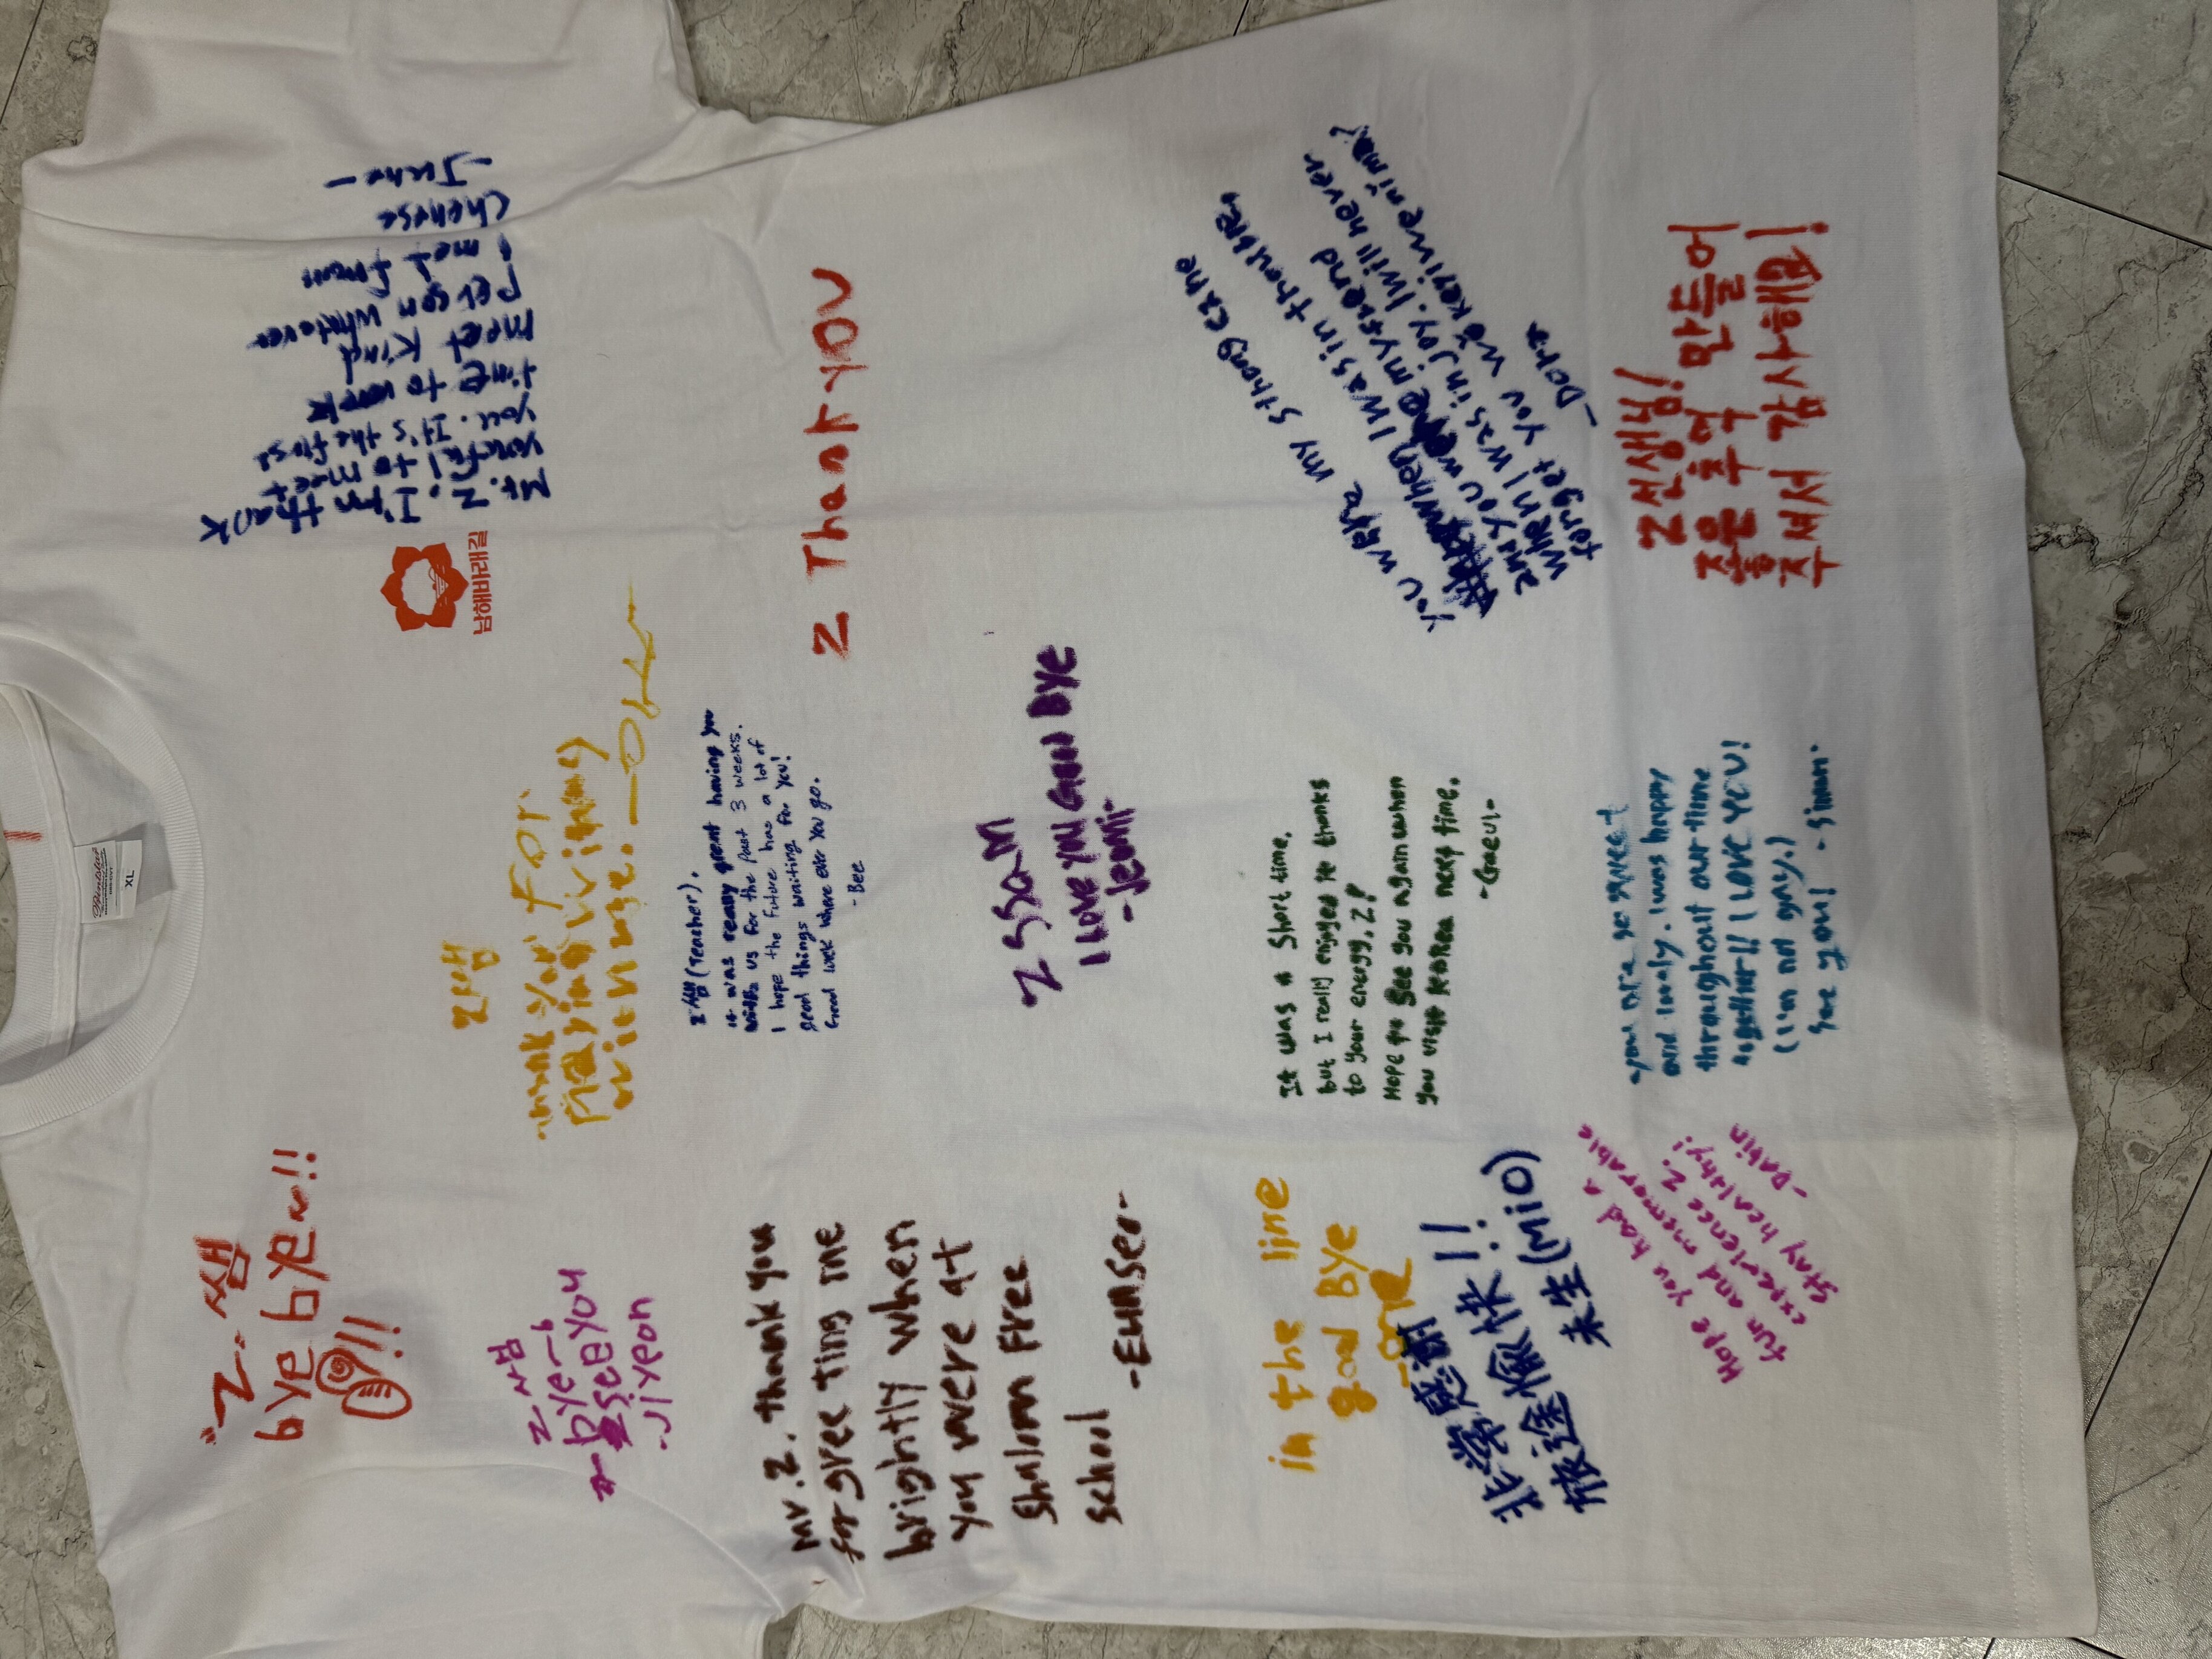 Printstar
XL
Z. 쌤
bye bye~!!
!!
Mr. Z, I'm thank
you. It's the first
time to
meet kind
person whatever
I met from
-June-
남해바래길
Z쌤
Thank you for
playing
with me.
Z쌤
bye~
see you
-Jiyeon
Z쌤 (Teacher),
it was really great having you
with us for the past 3 weeks.
I hope the future has a lot of
good things waiting for you!
Good luck where ever you go.
-Bee
Mr. Z. thank you
for gree ting me
brightly when
you were at
Shalom Free
school
-Eunseo-
Z Thank you
Z SSam
I Love you Good Bye
-Jeomi-
in the line
good Bye
-one
It was a short time,
but I really enjoyed it thanks
to your energy, Z!
Hope to see you again when
you visit Korea next time.
-Gaeul-
you were my strong cane
when I was in trouble,
and you were my friend
when I was in joy. I will never
forget you
-Dora
非常感謝
旅途愉快!!
未生(MiO)
Hope you had a
fun and memorable
experience Z.
Stay healthy!
-Dabin
you are so sweet
and lovely. I was happy
throughout our time
together!! I LOVE YOU!
(I'm not gay.)
See you! -Simon-
Z선생님!
좋은 추억 만들어
주셔서 감사해요!